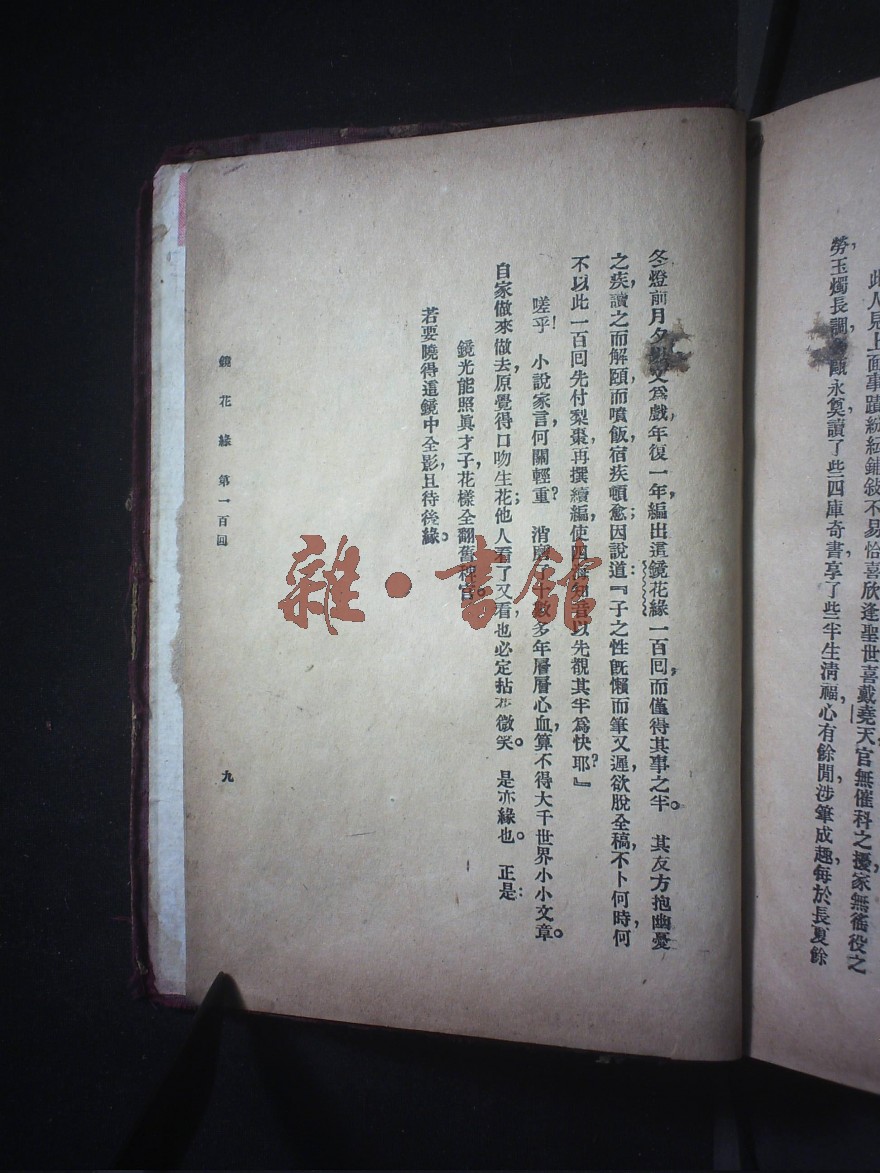 此人見上面事蹟紛紜鋪敍不易恰喜欣逢聖世喜戴堯天官無催科之擾,家無徭役之
勞,玉燭長調,甌永奠,讀了些四庫奇書,享了些半生清福,心有餘閒,涉筆成趣,每於長夏餘
冬燈前月夕,文爲戲,年復一年,編出這鏡花緣一百回,而僅得其事之半。其友方抱幽憂
之疾,讀之而解頤而噴飯,宿疾頓愈;因說道:『子之性旣懶而筆又遲,欲脫全稿,不卜何時,何
不以此一百回先付梨棗,再撰續編,使四海知音以先覩其半爲快耶?』
嗟乎!小說家言,何關輕重?消磨了十數多年層層心血,算不得大千世界小小文章。
自家做來做去,原覺得口吻生花;他人看了又看,也必定拈花微笑。是亦緣也。正是:
鏡光能照眞才子,花樣全翻舊稗官。
若要曉得這鏡中全影,且待後緣。
鏡花緣 第一百回
九
雜·書館